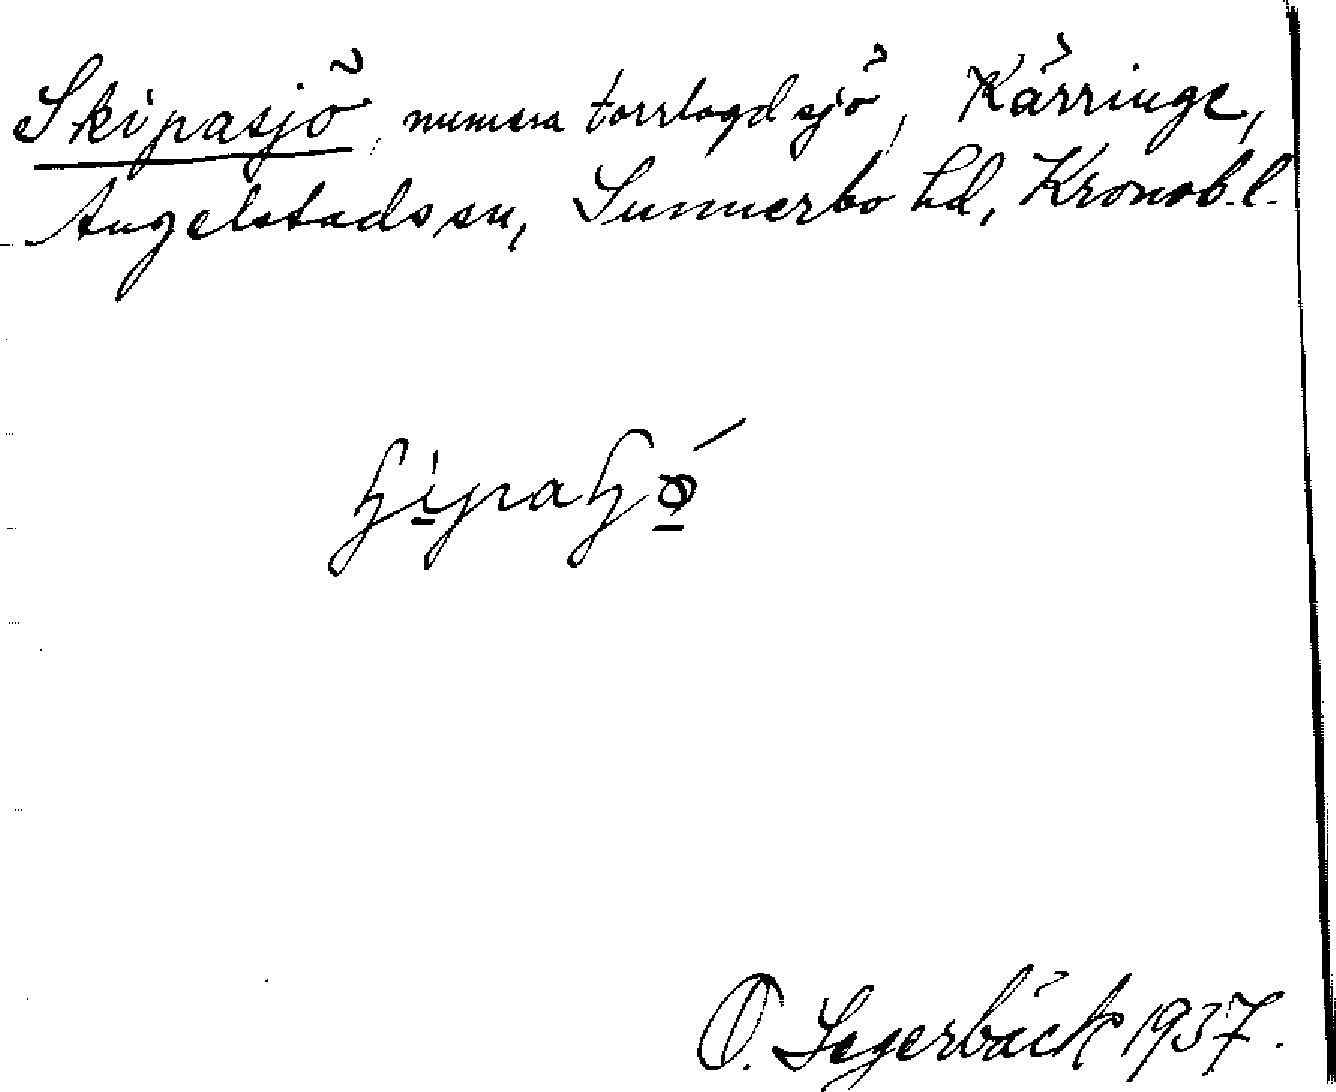 Skipasjö, numera torrlagd sjö, Kärringe,
Angelstads sn, Sunnerbo hd, Kronob. l.
ɧi̱paɧǿ̱
O. Segerbäck 1937.